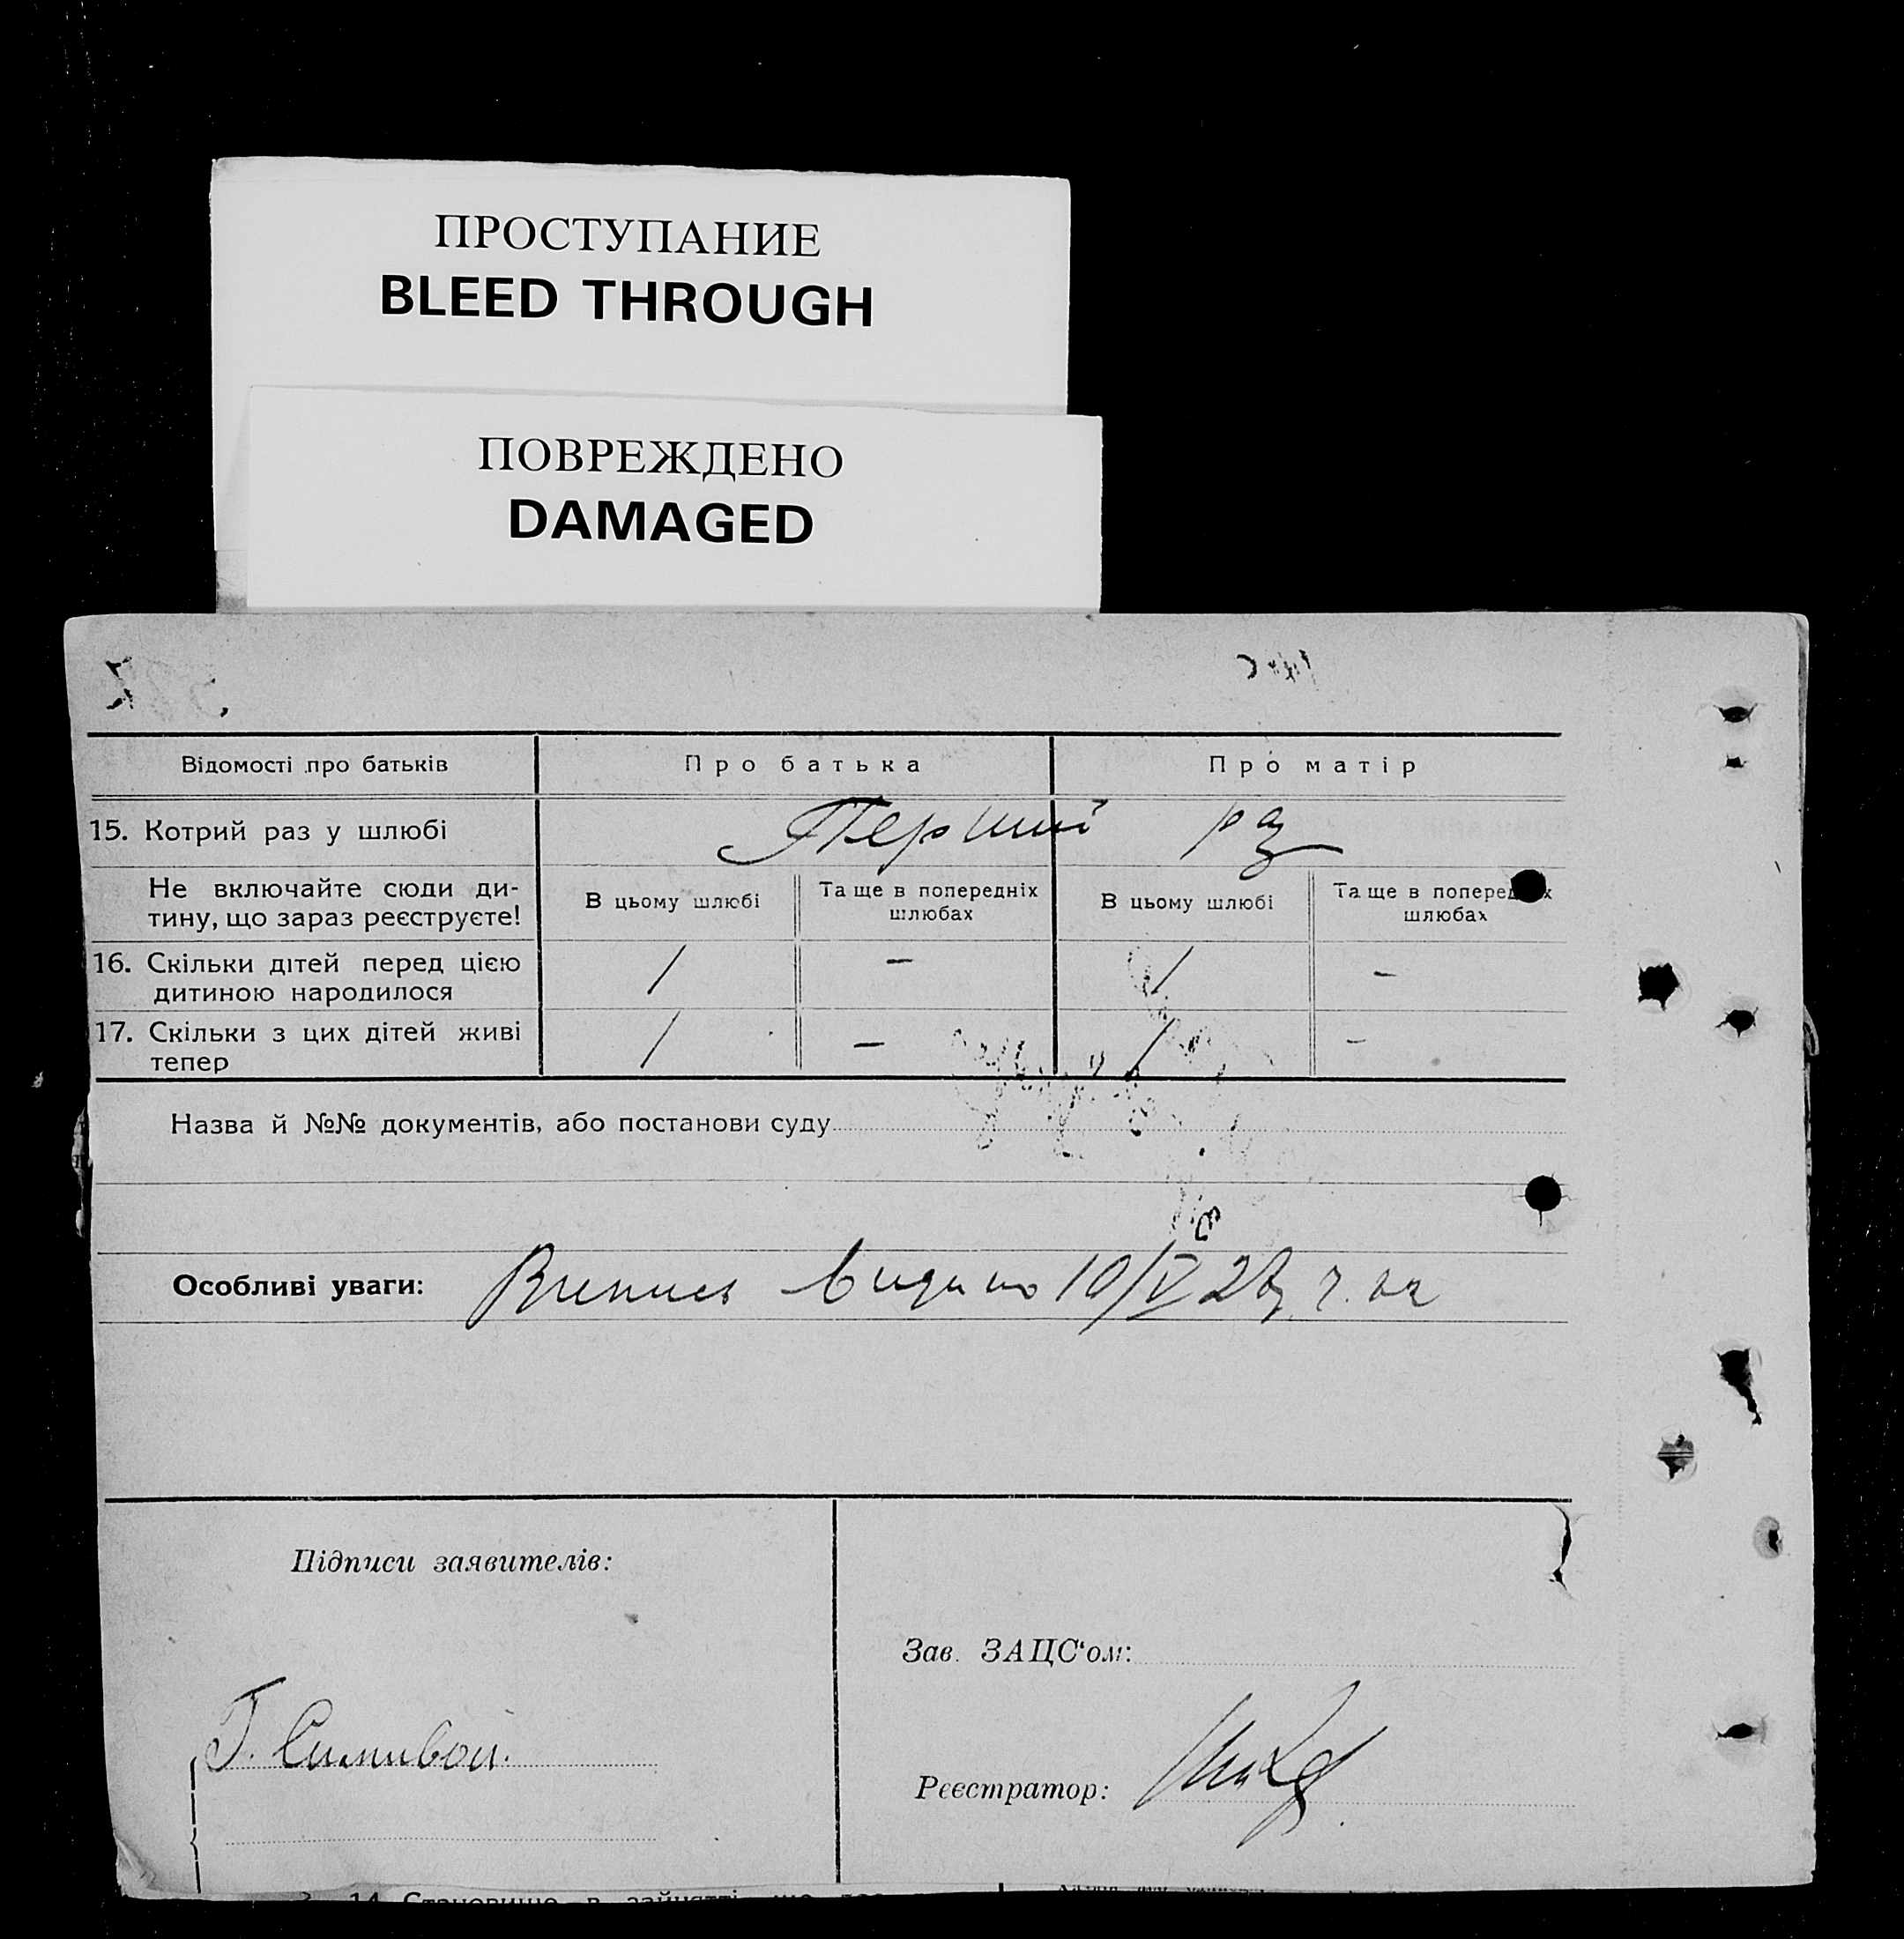 ПРОСТУПАНИЕ
BLEED THROUGH
ПОВРЕЖДЕНО
DAMAGED
Відомості про батьків Про батька Про матір
15. Котрий раз у шлюбі Перший раз
Не включайте сюди ди-
тину, що зараз реєструєте!
В цьому шлюбі
Та ще в попередніх
шлюбах
В цьому шлюбі
Та ще в попередніх
шлюбах
16. Скільки дітей перед цією
дитиною народилося
1 — 1 —
17. Скільки з цих дітей живі
тепер
1 — 1 —
Назва й №№ документів, або постанови суду
Особливі уваги: видано 10/V 28 р. за
Підписи заявителів:
Зав. ЗАЦС‘ом:
Реєстратор:
14 Становище в занятті, що дає